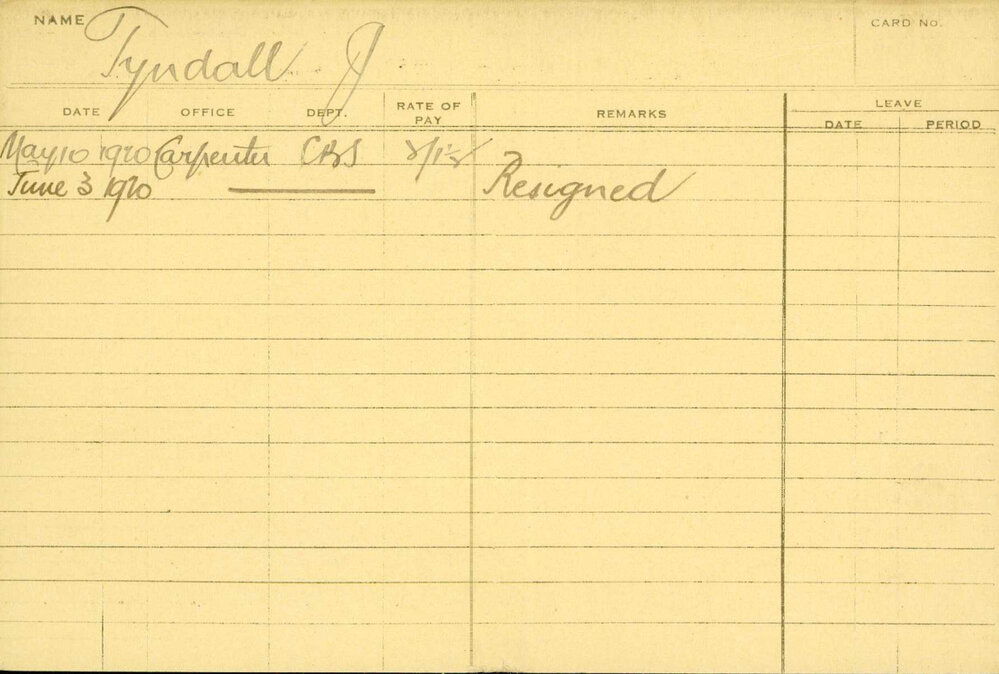 NAME Tyndall J CARD No.
DATE OFFICE DEPT. RATE OF PAY REMARKS LEAVE
DATE PERIOD
May 10 1920 Carpenter
June 3 1920 Resigned